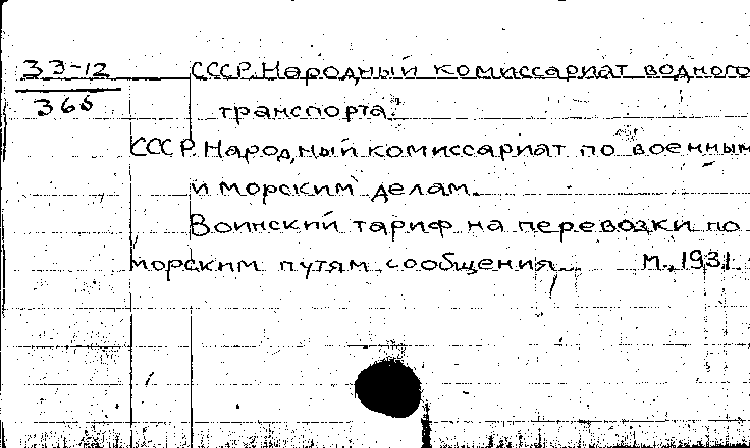 33-12 СССР. Народный комиссариат водного
365 транспорта.
СССР. Народный комиссариат по военным
и морским делам.
Воинский тариф на перевозки по
морским путям сообщения... М., 1931